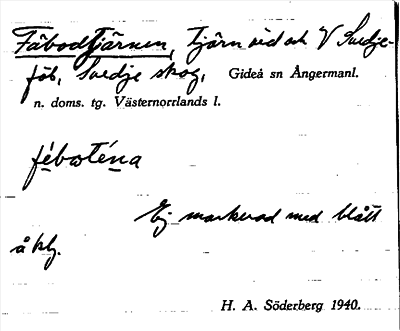 Fäbodtjärnen, Tjärn vid och V Svedje-
fäb, Svedje skog, Gideå sn Ångermanl.
n. doms. tg. Västernorrlands l.
fébωténa
Ej markerad med blått
å kbl.
H. A. Söderberg 1940.